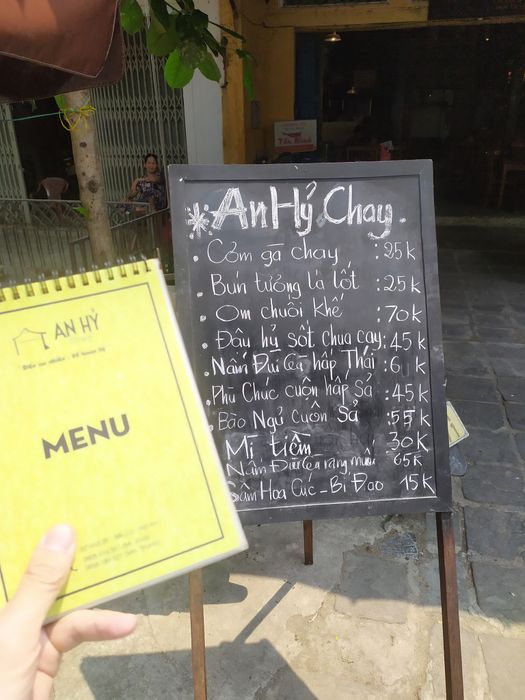 * An Hỷ Chay.
. Cơm gà chay : 25k
. Bún tương lá lốt : 25k
. Om chuối khế : 70k
. Đậu hỷ sốt chua cay : 45k
. Nấm Đùi Gà hấp Thái : 6 k
. Phù Chúc cuộn hấp Sả : 45k
. Bào Ngư cuộn Sả : 55k
Mì tiềm 30k
Nấm Đùi Gà rang muối 65k
Sâm Hoa Cúc - Bí Đao 15k
AN HỶ
MENU